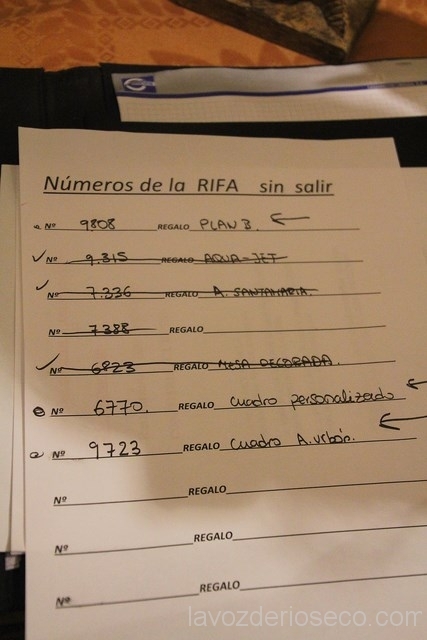 Números de la RIFA sin salir
Nº 9808 REGALO PLAN B.
Nº 9.315 REGALO AQUA-JET
Nº 7.336 REGALO A. SANTAMARIA.
Nº 7388 REGALO
Nº 6823 REGALO MESA DECORADA.
Nº 6770. REGALO cuadro personalizado
Nº 9723 REGALO cuadro A.urbán.
Nº REGALO
Nº REGALO
Nº REGALO
lavozderioseco.com